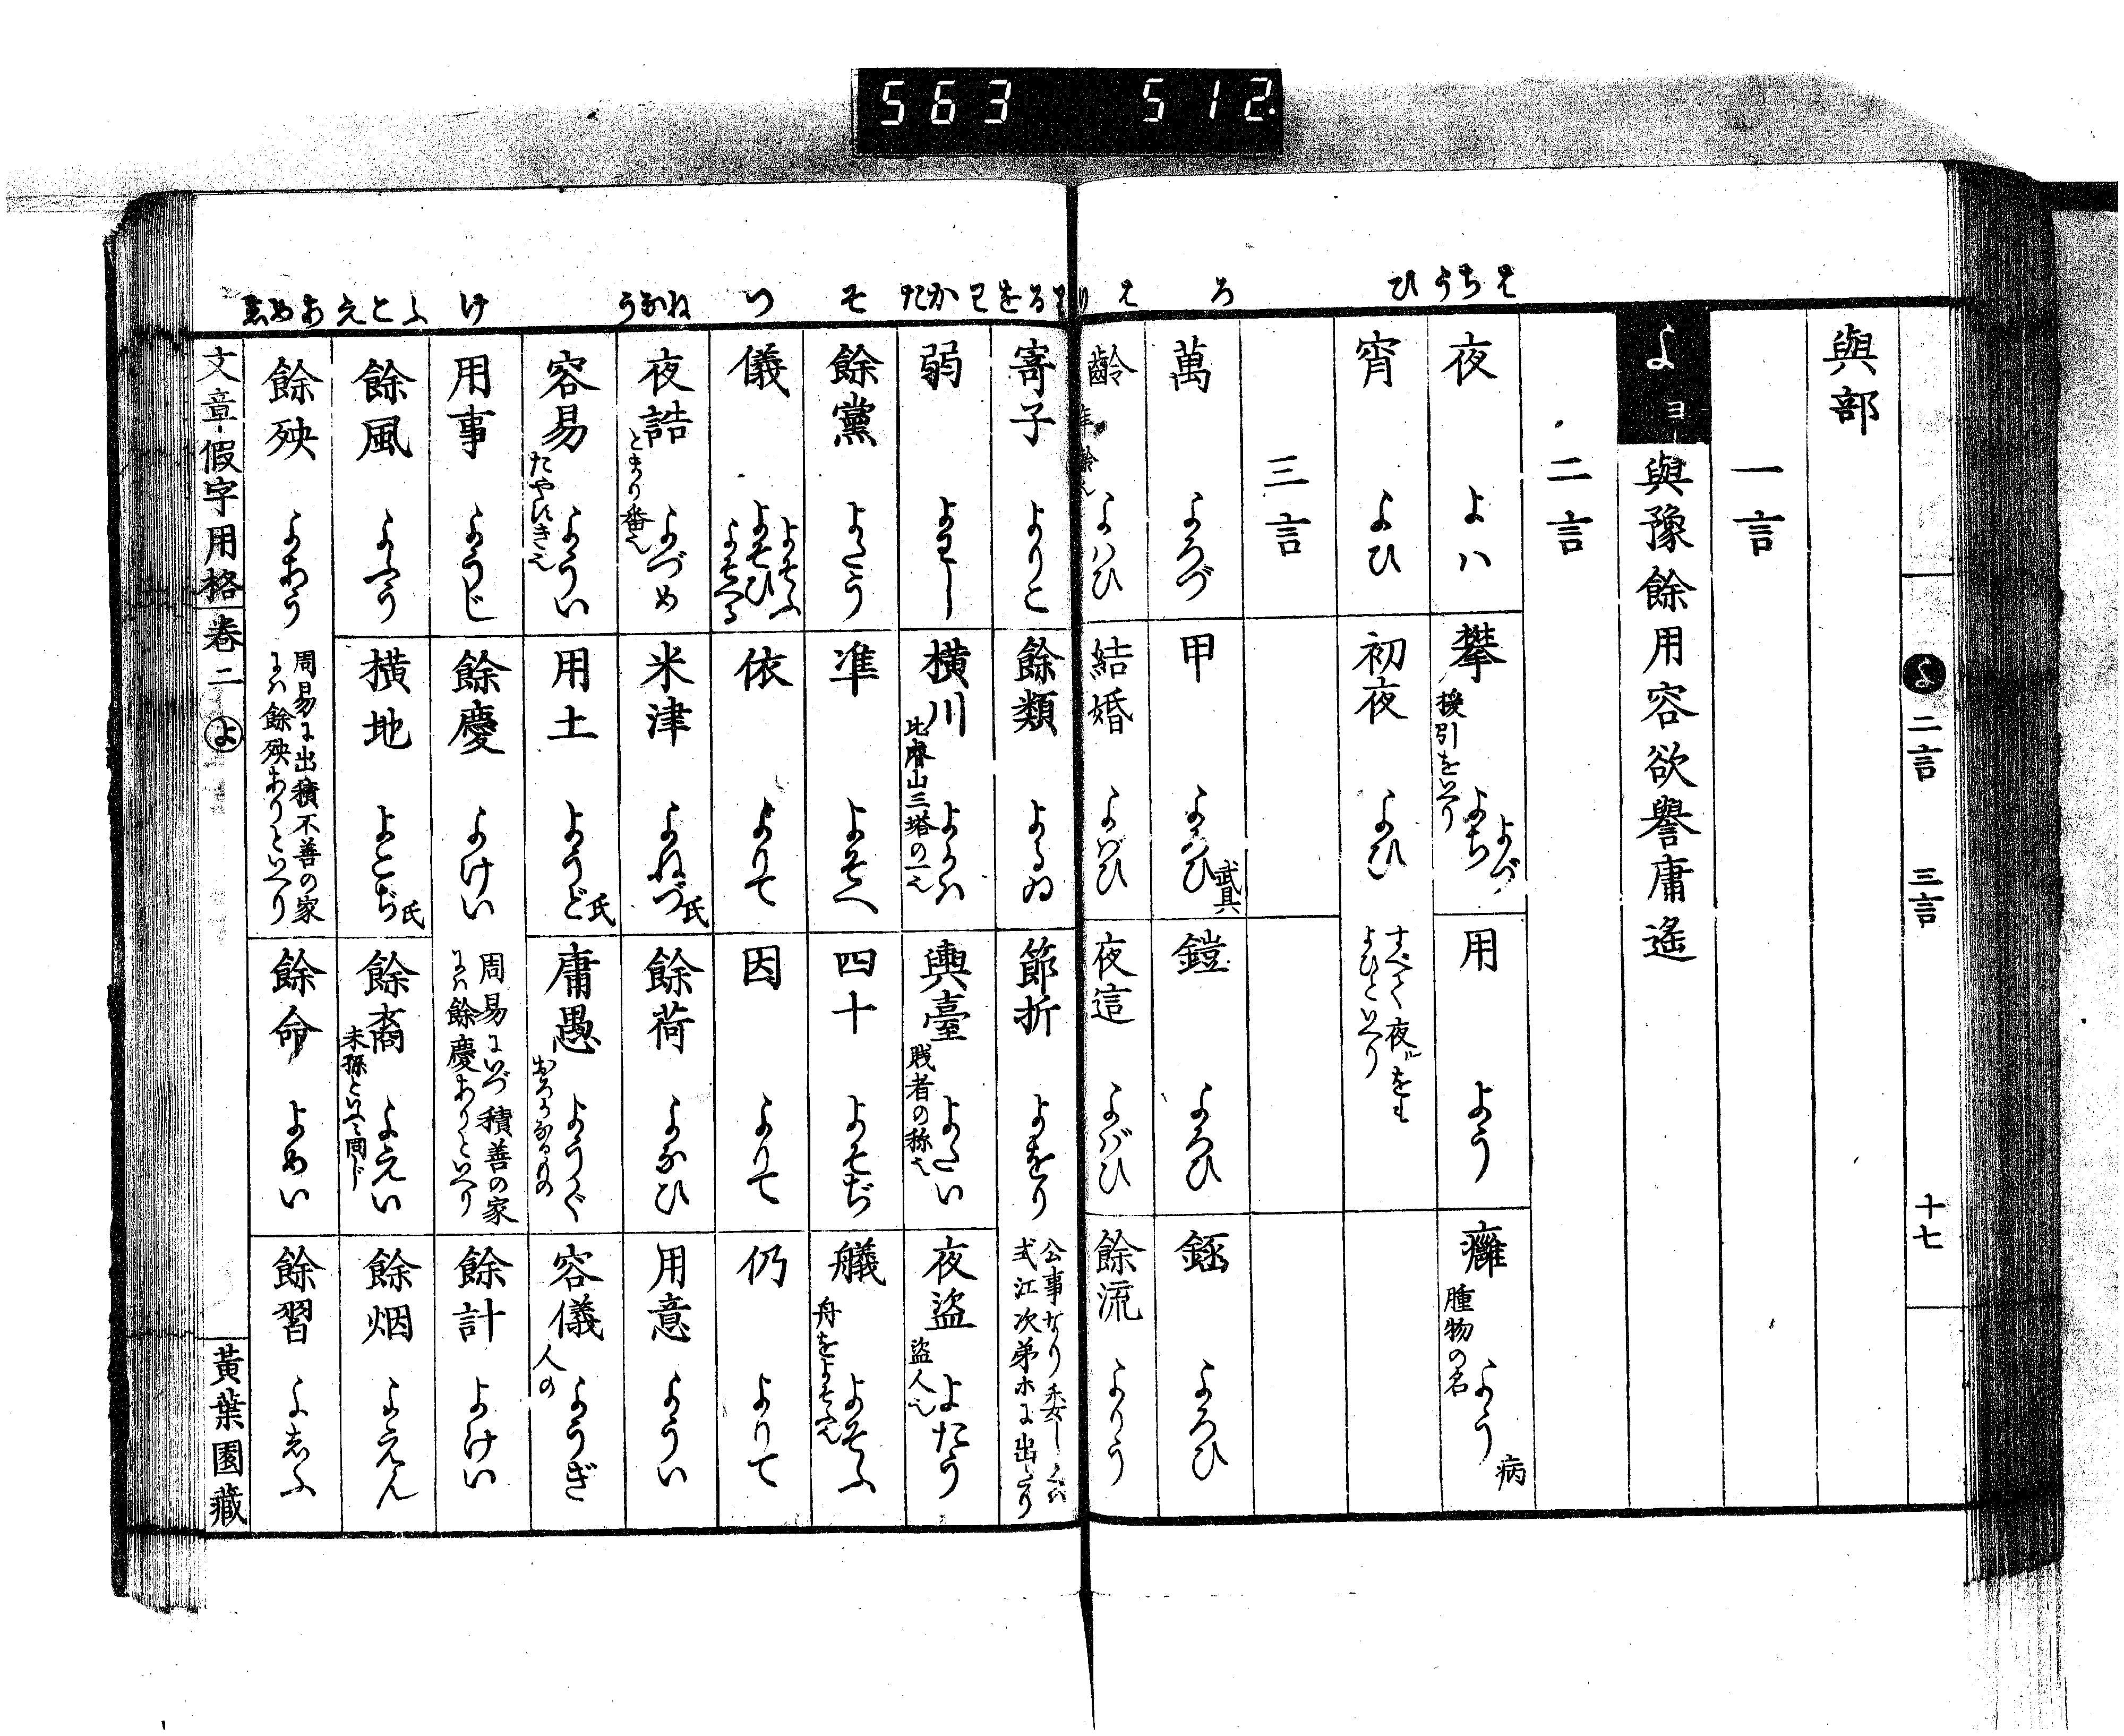 563 512.
はちうひ ろ は り
わるをこかた そ つ ねなう け ふとえあめし
よ 二言 三言 十七
與部
一言
よ ヨ 與豫餘用容欲譽庸遙
二言
夜 よハ
攀 よづ よぢ 援引をいへり
用 よう
癰 よう 腫物の名 病
宵 よひ
初夜 よひ すべて夜ルをも よひといへり
三言
萬 よろづ
甲 よろひ 武具
鎧 よろひ
鉦 よろひ
齡 よハひ
結婚 よバひ
夜這 よバひ
餘流 よりう
寄子 よりこ
餘類 よるゐ
節折 よをり 公事なり委しくハ 式江次第ホに出たり
弱 よわし
横川 よかハ 比叡山三塔の一也
輿臺 よたい 賎者の称也
夜盜 よたう 盜人也
餘黨 よたう
準 よそへ
四十 よそぢ
艤 よそふ 舟をよそふ也
儀 よそふ よそひ よそへる
依 よりて
因 よりて
仍 よりて
夜詰 よづめ とまり番也
米津 よねづ 氏
餘荷 よなひ
用意 ようい
容易 ようい たやすき也
用土 ようど 氏
庸愚 ようぐ おろかなるもの
容儀 ようぎ 人の
用事 ようじ
餘慶 よけい 周易にいづ積善の家 にハ餘慶ありといへり
餘計 よけい
餘風 よふう
横地 よこぢ 氏
餘裔 よえい 末孫といふに同じ
餘烟 よえん
餘殃 よあう 周易に出積不善の家 にハ餘殃ありといへり
餘命 よめい
餘習 よしふ
文章假字用格 卷二 よ 黃葉園藏